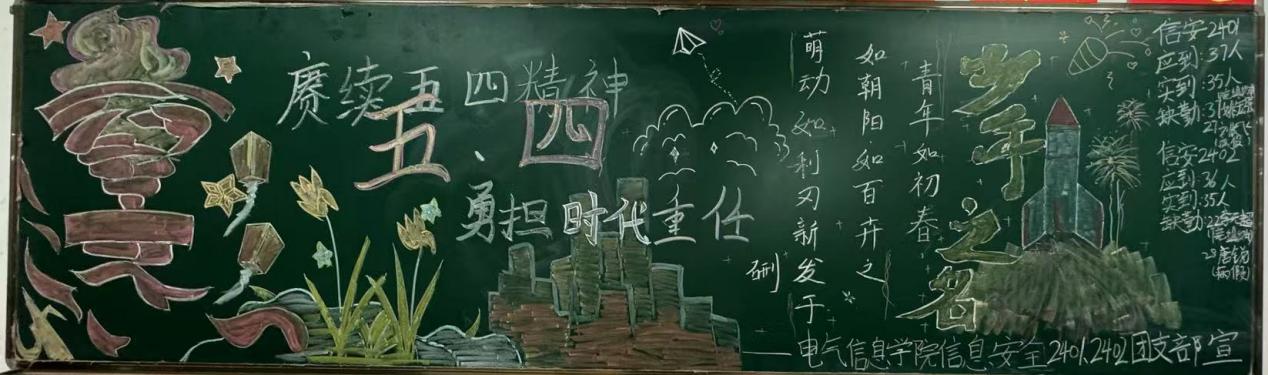 赓续五四精神
五、四
勇担时代重任
青年如初春
如朝阳如百卉之
萌动如利刃新发于
硎
少年之名
信安2401
应到:37人
实到:35人
缺勤:
信安2402
应到:36人
实到:35人
缺勤:
(病假)
——电气信息学院信息安全2401、2402团支部 宣